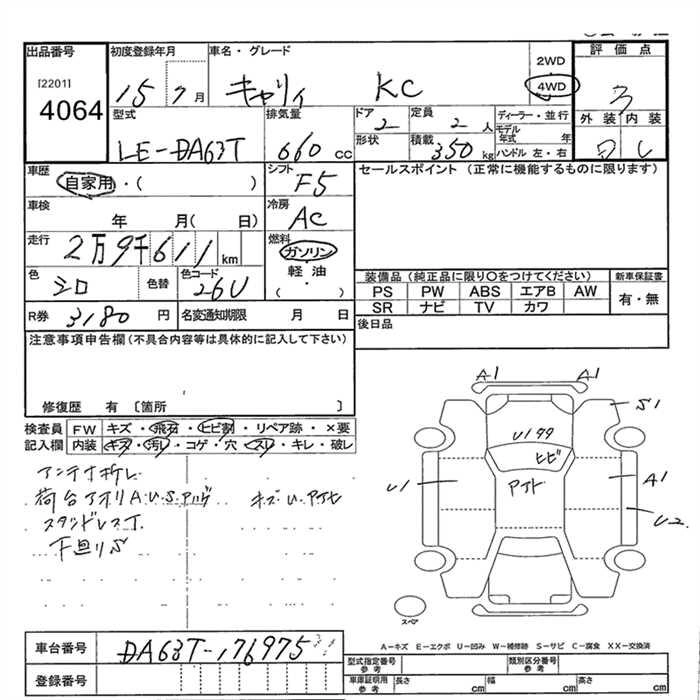 出品番号
[2201]
4064
初度登録年月
15 7月
車名・グレード
キャリィ KC
2WD
4WD
評価点
3
型式
LE-DA63T
排気量
660 cc
ドア
2
定員
2 人
形状
積載
350 kg
ディーラー・並行
モデル年式 年
ハンドル 左・右
外装 内装
車歴
自家用・( )
シフト
F5
セールスポイント (正常に機能するものに限ります)
車検
年 月( 日)
冷房
AC
走行
2万9千611 km
燃料
ガソリン
軽油
( ・ )
色
シロ
色替
色コード
26U
装備品 (純正品に限り○をつけてください)
新車保証書
PS PW ABS エアB AW
有・無
SR ナビ TV カワ
R券 3180 円
名変通知期限 月 日
後日品
注意事項申告欄 (不具合内容等は具体的に記入して下さい)
修復歴 有 〔箇所 〕
検査員
記入欄
FW キズ・飛石・ヒビ割・リペア跡・×要
内装 キズ・汚れ・コゲ・穴・スレ・キレ・破レ
アンテナ折レ
荷台アオリA.U.S.
キズ U.
下回りS
A1 A1
S1
U199
ヒビ
U1
A1
U2
スペア
A-キズ E-エクボ U-凹み W-補修跡 S-サビ C-腐食 XX-交換済
車台番号
DA63T-176975
登録番号
型式指定番号
参考
類別区分番号
参考
車庫証明用
参考
長さ cm 幅 cm 高さ cm